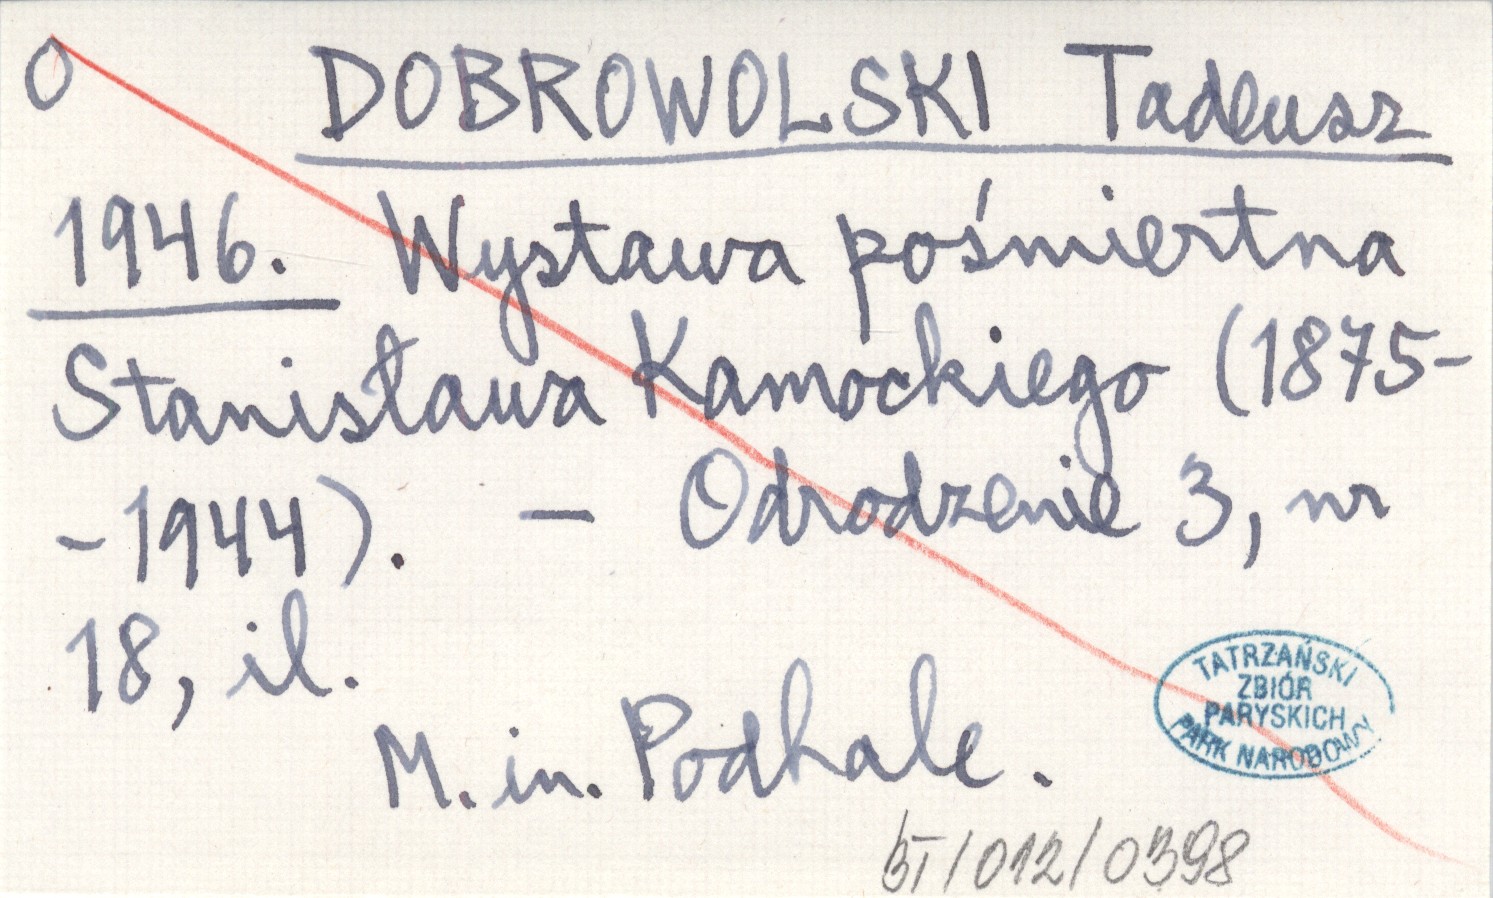 O DOBROWOLSKI Tadeusz
1946. Wystawa pośmiertna
Stanisława Kamockiego (1875-
-1944). — Odrodzenie 3, nr
18, il.
M. in. Podhale.
TATRZAŃSKI
ZBIÓR
PARYSKICH
PARK NARODOWY
BT/012/0398